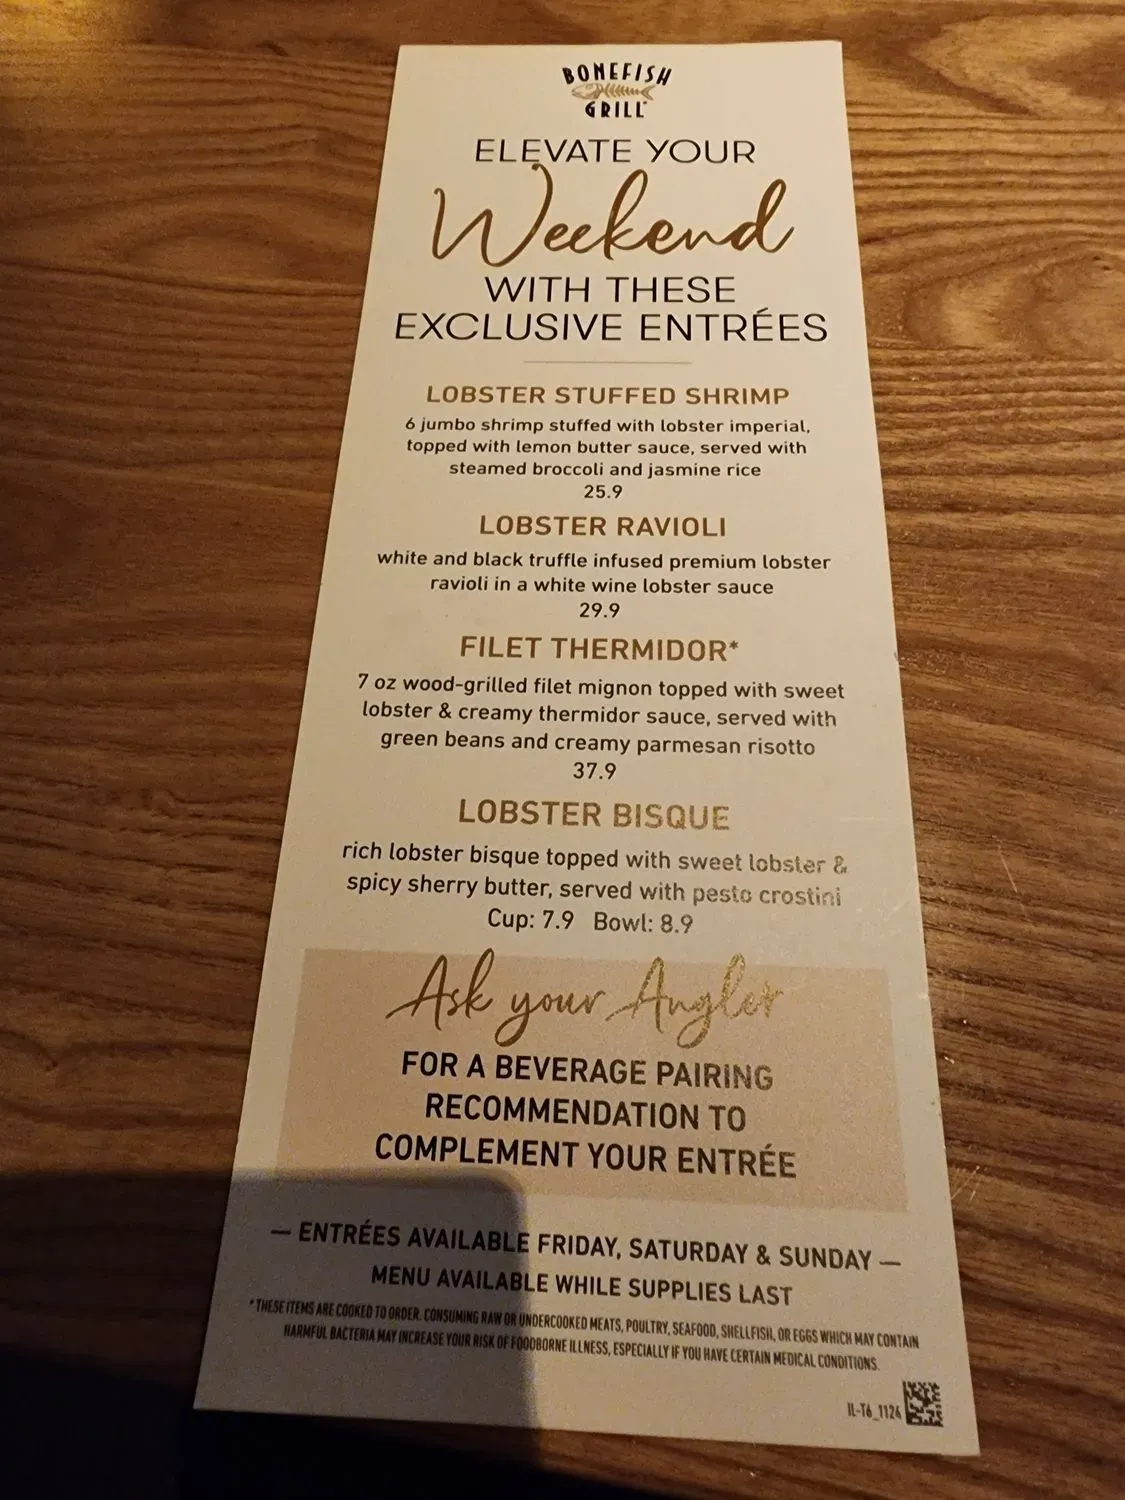 BONEFISH
GRILL
ELEVATE YOUR
Weekend
WITH THESE
EXCLUSIVE ENTRÉES
LOBSTER STUFFED SHRIMP
6 jumbo shrimp stuffed with lobster imperial,
topped with lemon butter sauce, served with
steamed broccoli and jasmine rice
25.9
LOBSTER RAVIOLI
white and black truffle infused premium lobster
ravioli in a white wine lobster sauce
29.9
FILET THERMIDOR*
7 oz wood-grilled filet mignon topped with sweet
lobster & creamy thermidor sauce, served with
green beans and creamy parmesan risotto
37.9
LOBSTER BISQUE
rich lobster bisque topped with sweet lobster &
spicy sherry butter, served with pesto crostini
Cup: 7.9 Bowl: 8.9
Ask your Angler
FOR A BEVERAGE PAIRING
RECOMMENDATION TO
COMPLEMENT YOUR ENTRÉE
— ENTRÉES AVAILABLE FRIDAY, SATURDAY & SUNDAY —
MENU AVAILABLE WHILE SUPPLIES LAST
* THESE ITEMS ARE COOKED TO ORDER. CONSUMING RAW OR UNDERCOOKED MEATS, POULTRY, SEAFOOD, SHELLFISH, OR EGGS WHICH MAY CONTAIN
HARMFUL BACTERIA MAY INCREASE YOUR RISK OF FOODBORNE ILLNESS, ESPECIALLY IF YOU HAVE CERTAIN MEDICAL CONDITIONS.
IL-T6_1124